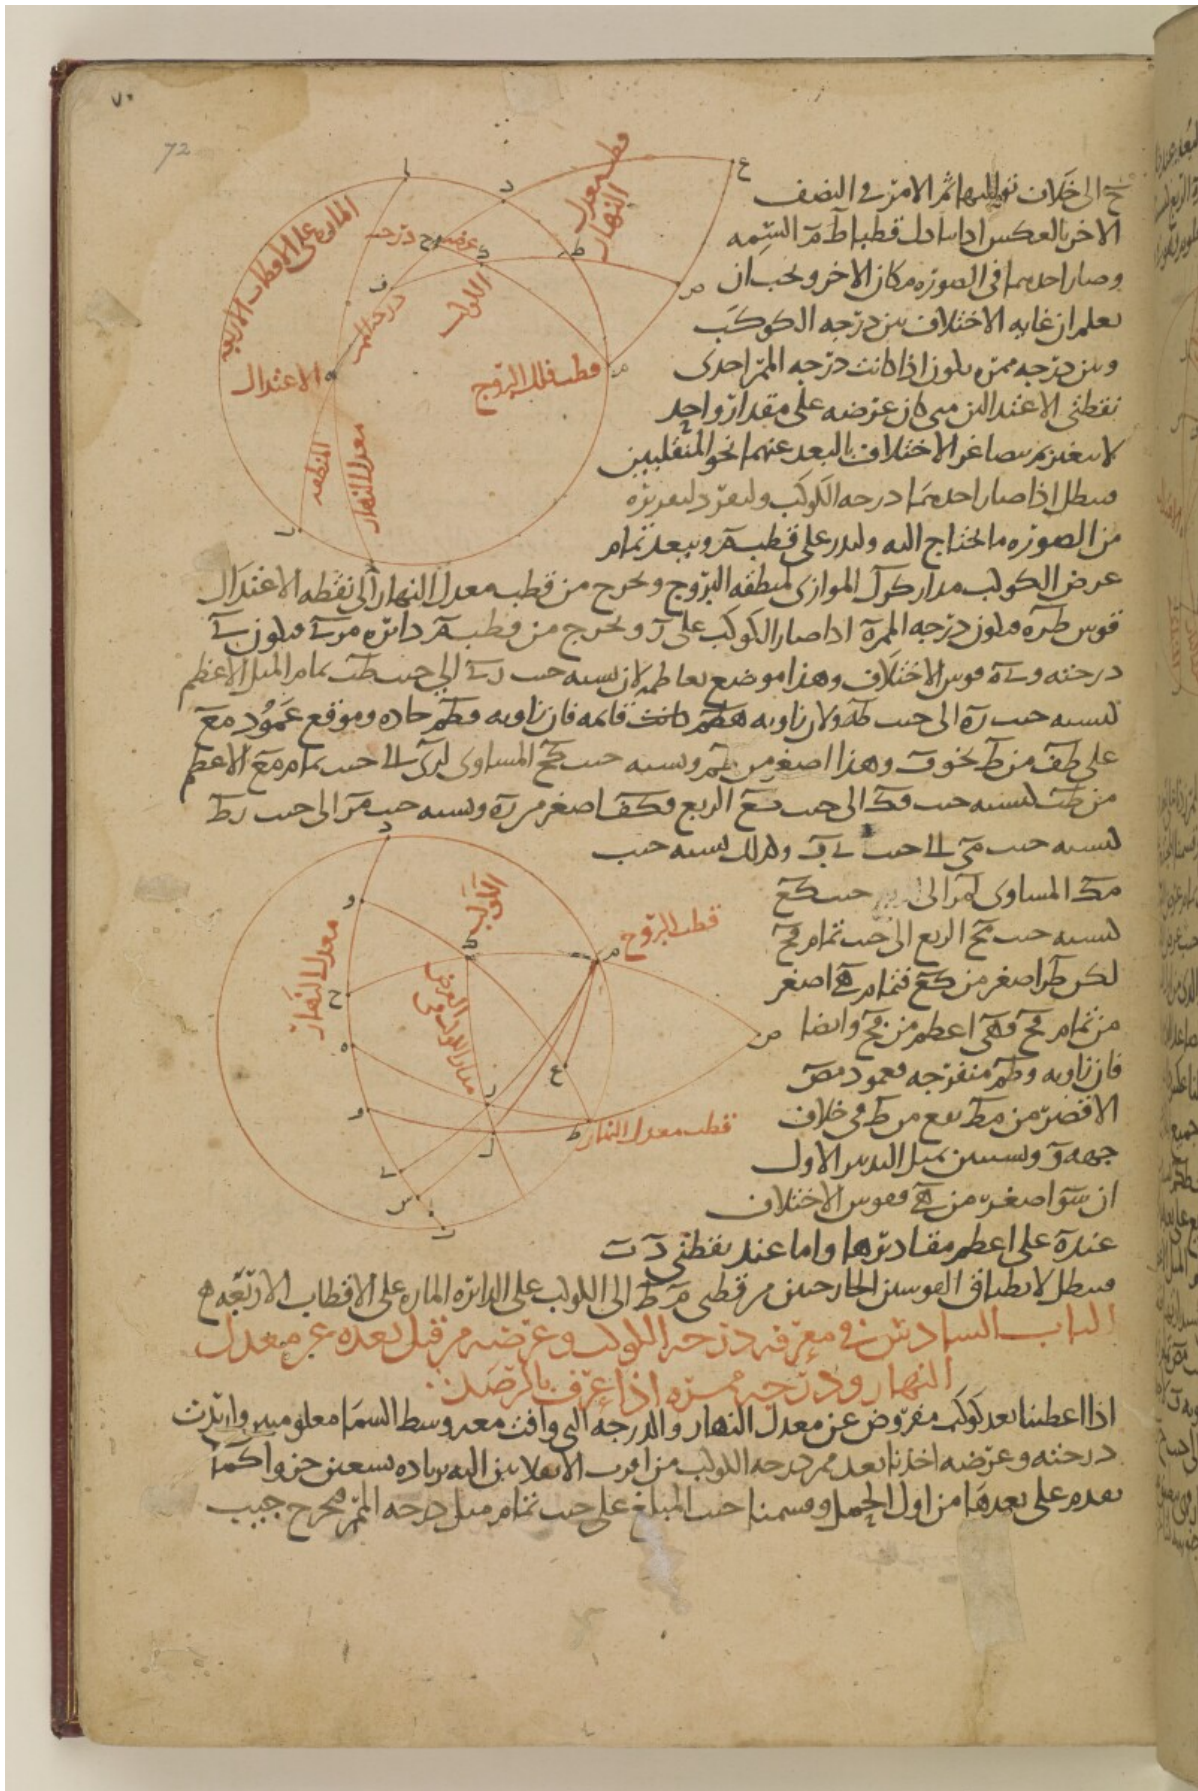 ٧٠
72
ح الى خلاف تواليها ثم الامر في النصف
الاخر بالعكس اذا تبادل قطبا ط م السمه
وصار احدهما في الصوره مكان الاخر ويجب ان
يعلم ان غايه الاختلاف بين درجه الكوكب
وبين درجه ممره يكون اذا كانت درجه الممر احدى
نقطتي الاعتدالين متى كان عرضه على مقدار واحد
لا يتغير ثم يتصاغر الاختلاف بالبعد عنهما نحو المنقلبين
فيبطل اذا صار احدهما درجه الكوكب وليعرد لتقريره
من الصوره ما يحتاج اليه وليدر على قطب م وببعد تمام
عرض الكوكب مدار كرل الموازي لمنطقه البروج ويخرج من قطب معدل النهار الى نقطه الاعتدال
قوس طره فيكون درجه الممر ه اذا صار الكوكب على ر ويخرج من قطب م دائره مري فيكون ي
درجته و ي ه قوس الاختلاف وهذا موضع تعاظمه لان نسبه جيب ري الى جيب طب تمام الميل الاعظم
كنسبه جيب ره الى جيب طه ولان زاويه هطم كانت قائمه فان زاويه فطم حاده وموقع عمود مع
على طف من ط نحو ف وهذا اصغر من طم ونسبه جيب كح المساوي لري الى جيب تمام مع الاعظم
من طب كنسبه جيب فك الى جيب فع الربع فكف اصغر من ره ونسبه جيب مر الى جيب رط
كنسبه جيب مي الى جيب ي ب وكذلك نسبه جيب
مك المساوي لمر الى جيب كع
كنسبه جيب مح الربع الى جيب تمام فح
لكن طر اصغر من كع فتمام هي اصغر
من تمام فح فهي اعظم من فح وايضا
فان زاويه وطم منفرجه فعمود مص
الاقصر من مط يقع من ط في خلاف
جهه و وسيبين بمثل التدبير الاول
ان سو اصغر من هي فقوس الاختلاف
عند ه على اعظم مقاديرها واما عند نقطتي د ب
فيبطل لانطباق القوسين الخارجتين من قطبي م ط الى الكوكب على الدائره الماره على الاقطاب الاربعه
الباب السادس في معرفه درجه الكوكب وعرضه من قبل بعده عن معدل
النهار ودرجه ممره اذا عرف بالرصد
اذا اعطينا بعد كوكب مفروض عن معدل النهار والدرجه التي وافت معه وسط السما معلومين واردت
درجته وعرضه اخذنا بعد ممر درجه الكوكب من اقرب الانقلابين اليه بزياده تسعين جزوا كما
تقدم على بعدها من اول الحمل وقسمنا جيب المبلغ على جيب تمام ميل درجه الممر فخرج جيب
الماره على الاقطاب الاربعه
قطب معدل النهار
عرض
درجته
الكوكب
درجه الممر
قطب فلك البروج
الاعتدال
المنطقه
معدل النهار
الكوكب
قطب البروج
معدل النهار
مدار الكوكب في العرض
قطب معدل النهار